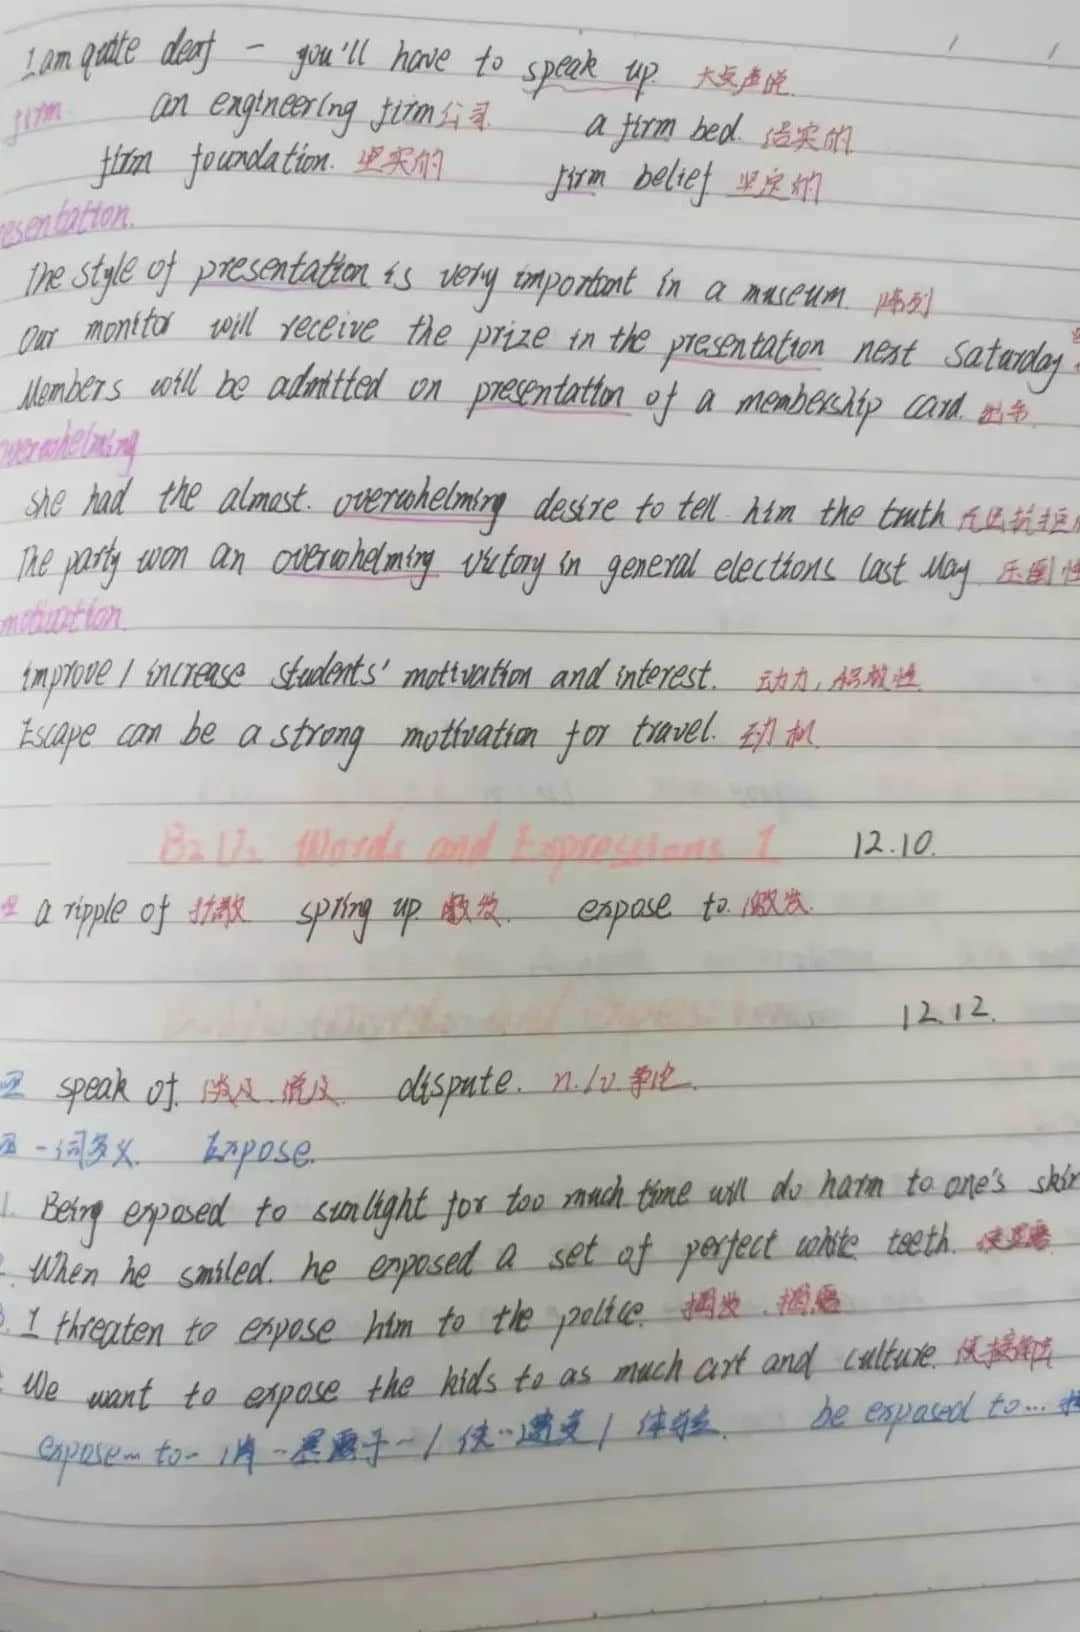 I am quite deaf - you'll have to speak up. 大点声说.
firm an engineering firm 公司 a firm bed. 结实的
firm foundation. 坚实的 firm belief 坚定的
resentation.
The style of presentation is very important in a museum. 陈列
Our monitor will receive the prize in the presentation next Saturday
Members will be admitted on presentation of a membership card. 出示.
overwhelming
She had the almost. overwhelming desire to tell him the truth 无法抗拒
The party won an overwhelming victory in general elections last May 压倒性
motivation.
improve / increase students' motivation and interest. 动力, 积极性
Escape can be a strong motivation for travel. 动机
Words and Expressions 1 12.10.
a ripple of 扩散 spring up expose to.
12.12.
speak of. 谈及 dispute. n./v. 争论.
一词多义. Expose.
1. Being exposed to sunlight for too much time will do harm to one's skin
When he smiled. he exposed a set of perfect white teeth.
3. I threaten to expose him to the police. 揭发. 揭露
We want to expose the kids to as much art and culture. 使接触
expose… to… 暴露于… / 使…遭受 / 体验. be exposed to…